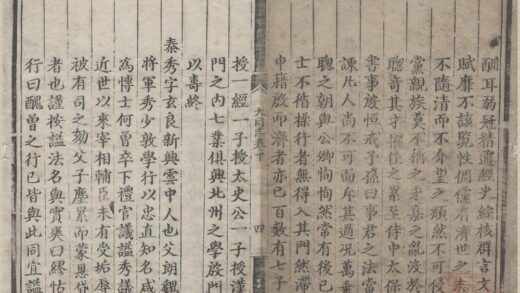 耳弱短精通經史綜核群言文
賦靡不該覽性倜儻有濟世之才
不隨清而不介望之頹然不可侵
黨親族莫不稱之永嘉之亂沒於
聰奇其才擢任之累至侍中太保
書事殷恒戒子孫曰事君之法當
諫凡人尚不可面斥其過況萬乘
聰之朝與公卿恂恂然常有後已
士不脩操行者無得入其門然滯
申藉殷而濟者亦已百數有七子
大同志卷十 四
授一經一子授太史公一子授漢
門之內七業俱興北州之學殷門
以壽終
秦秀字玄良新興雲中人也父朗魏
將軍秀少敦學行以忠直知名咸
為博士何曾卒下禮官議謚秀議
近世以來宰相輔臣未有受垢辱
被有司之劾父子塵累而蒙恩貸
者也謹按謚法名與實爽曰繆怙
行曰醜曾之行已皆與此同宜謚